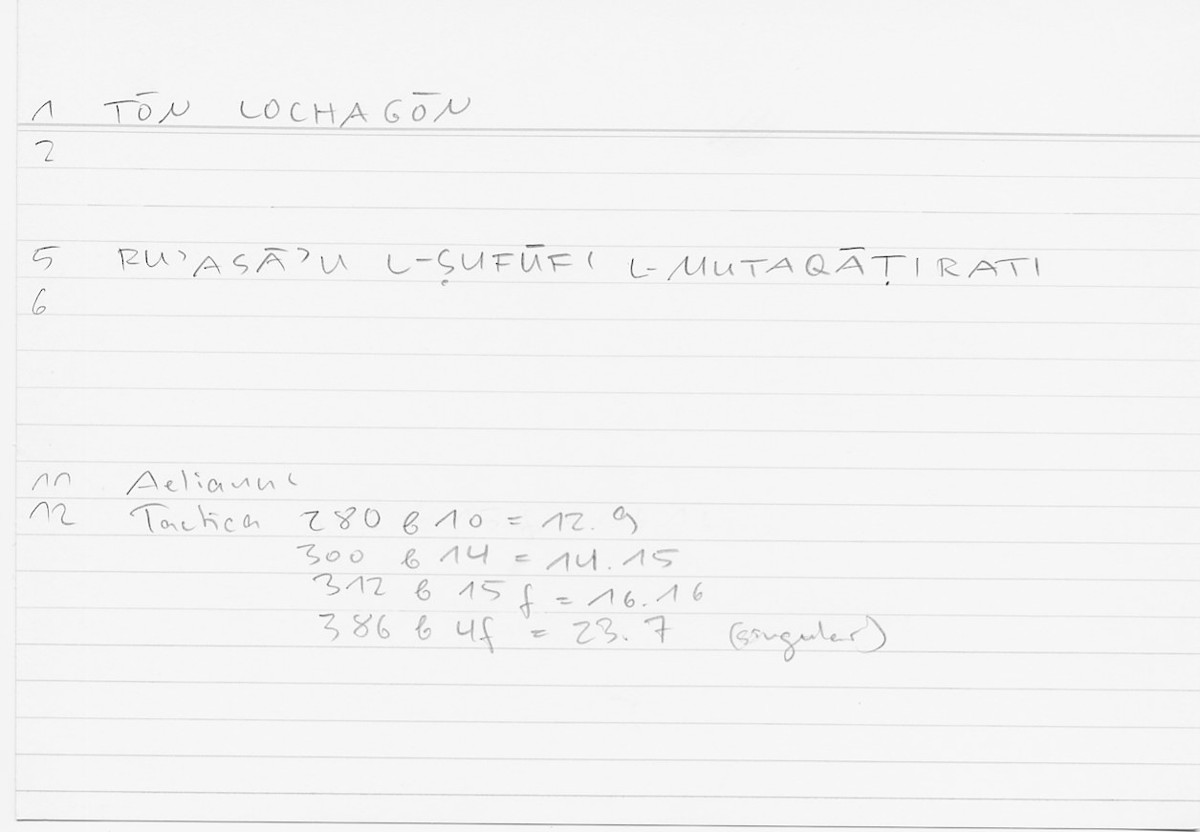 1 TŌN LOCHAGŌN
2
5 RUʾASĀʾU L-ṢUFŪFI L-MUTAQĀṬIRATI
6
11 Aelianus
12 Tactica 280 b 10 = 12.9
300 b 14 = 14.15
312 b 15 f = 16.16
386 b 4f = 23.7 (singular)